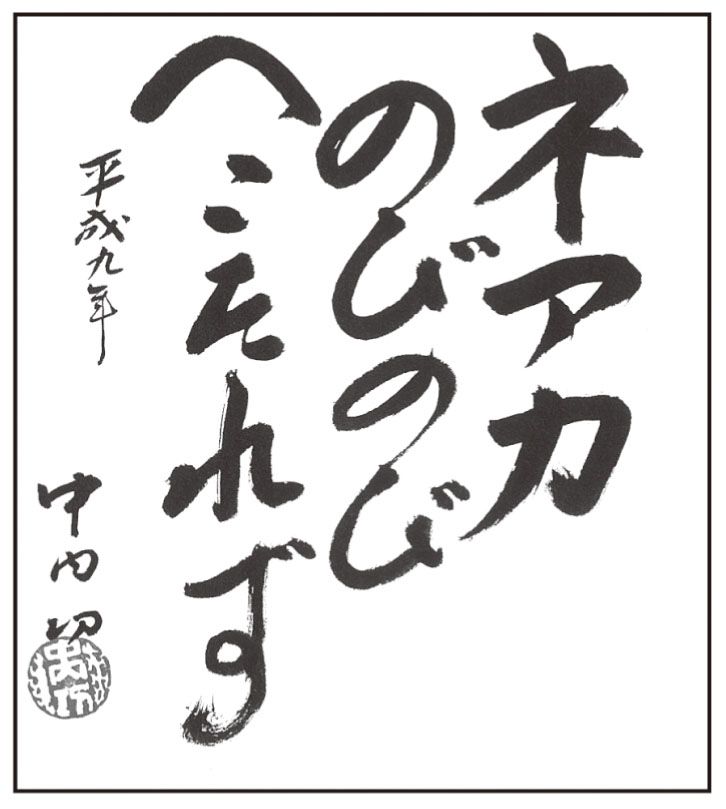 ネアカ
のびのび
へこたれず
平成九年
中内㓛